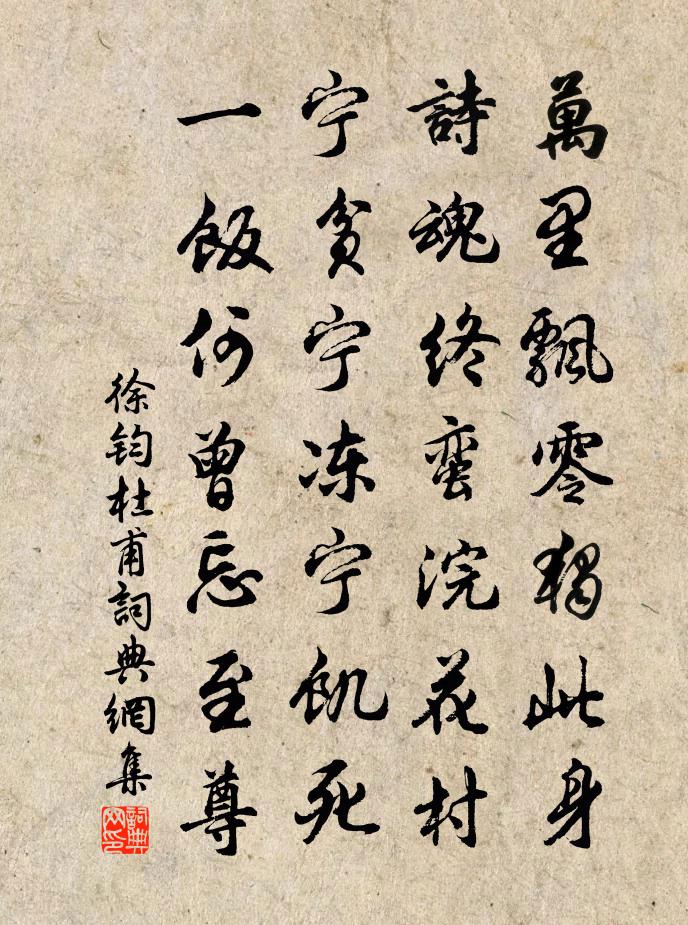 萬里飄零獨此身
詩魂終蛮浣花村
宁貧宁冻宁飢死
一飯何曾忘至尊
徐钧杜甫詞典網集
詞典网印